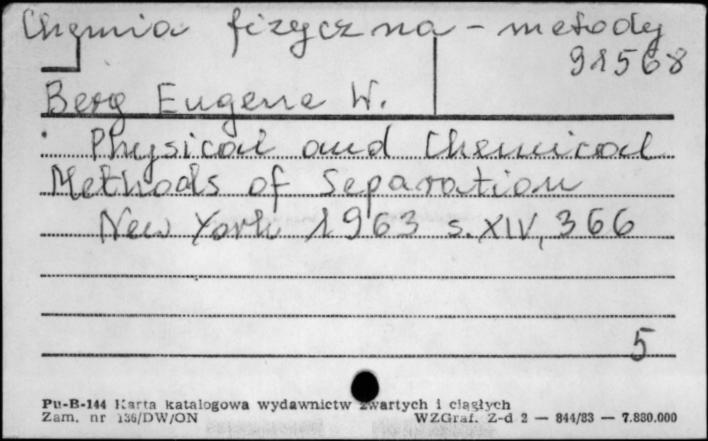 Chemia fizyczna - metody
91568
Berg Eugene W.
Physical and Chemical
Methods of Separation
New York 1963 s. XIV, 366
5
Pu-B-144 Karta katalogowa wydawnictw zwartych i ciągłych
Zam. nr 136/DW/ON WZGraf. Z-d 2 — 844/83 — 7.880.000